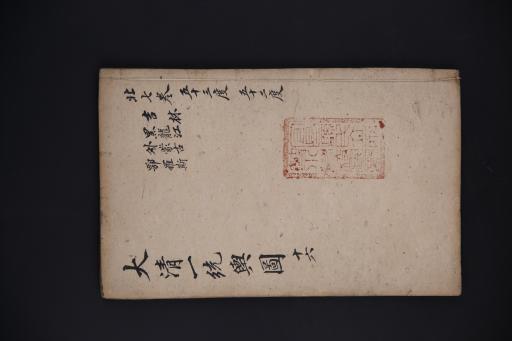 北七卷 五十三度 五十二度
吉林
黑龍江
外蒙古
鄂羅斯
大清一統輿圖 十六